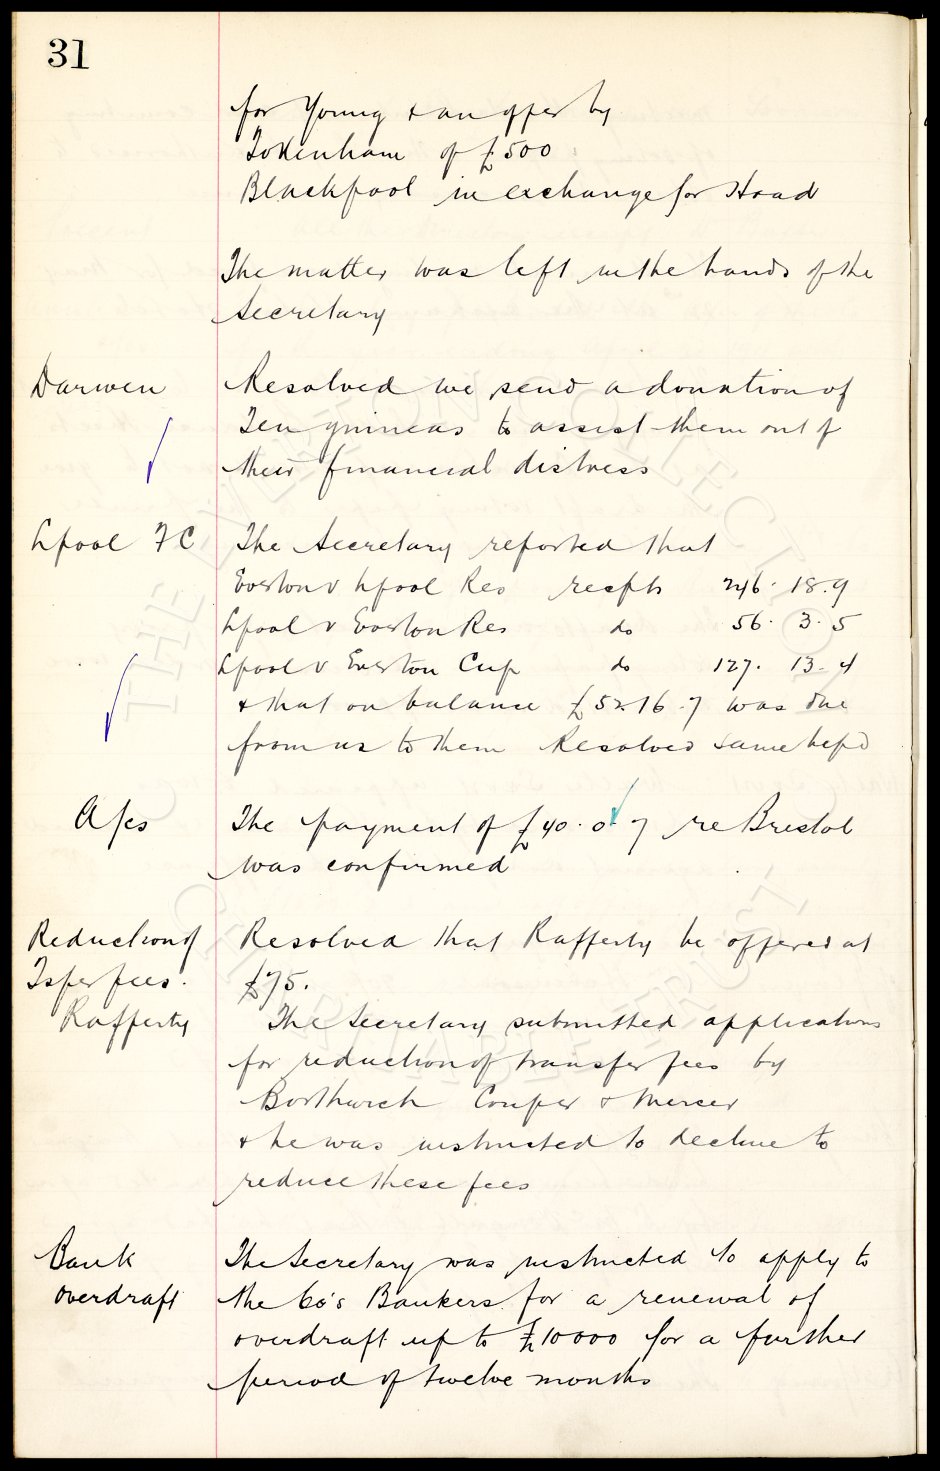 31
for Young & an offer by
Tottenham of £500
Blackpool in exchange for Hoad
The matter was left in the hands of the
Secretary
Darwen
Resolved we send a donation of
Ten guineas to assist them out of
their financial distress
Lpool F C
The Secretary reported that
Everton v Lpool Res recpts 246. 18. 9
Lpool v Everton Res do 56. 3. 5
Lpool v Everton Cup do 127. 13. 4
& that on balance £52. 16. 7 was due
from us to them Resolved same be pd
A/cs
The payment of £40. 0. 7 re Bristol
was confirmed
Reduction of
Tsfer fees.
Rafferty
Resolved that Rafferty be offered at
£75.
The Secretary submitted applications
for reduction of transfer fees by
Borthwick Couper & Mercer
& he was instructed to decline to
reduce these fees
Bank
overdraft
The Secretary was instructed to apply to
the Co's Bankers for a renewal of
overdraft up to £10000 for a further
period of twelve months
THE EVERTON COLLECTION